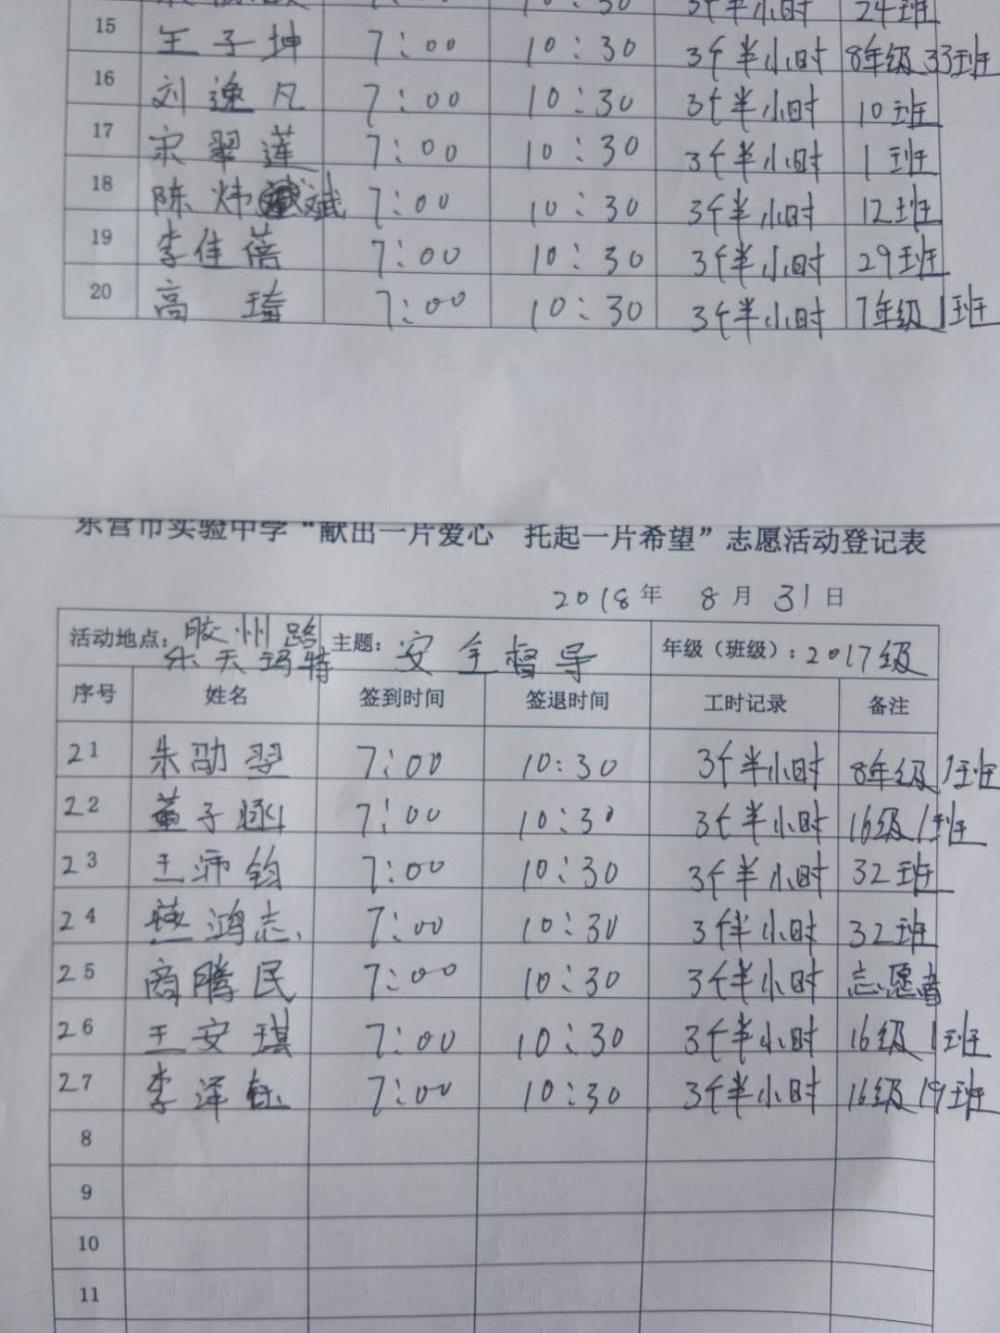 10:30 3个半小时 24班
15 王子坤 7:00 10:30 3个半小时 8年级33班
16 刘逸凡 7:00 10:30 3个半小时 10班
17 宋翠莲 7:00 10:30 3个半小时 1班
18 陈炜斌 7:00 10:30 3个半小时 12班
19 李佳蓓 7:00 10:30 3个半小时 29班
20 高琦 7:00 10:30 3个半小时 7年级1班
东营市实验中学“献出一片爱心 托起一片希望”志愿活动登记表
2018年 8月 31日
活动地点：胶州路乐天玛特 主题：安全督导 年级（班级）：2017级
序号 姓名 签到时间 签退时间 工时记录 备注
21 朱劭翌 7:00 10:30 3个半小时 8年级1班
22 董子 7:00 10:30 3个半小时 16级1班
23 王沛钧 7:00 10:30 3个半小时 32班
24 燕鸿志 7:00 10:30 3个半小时 32班
25 商腾民 7:00 10:30 3个半小时 志愿者
26 王安琪 7:00 10:30 3个半小时 16级1班
27 李泽钰 7:00 10:30 3个半小时 16级19班
8
9
10
11